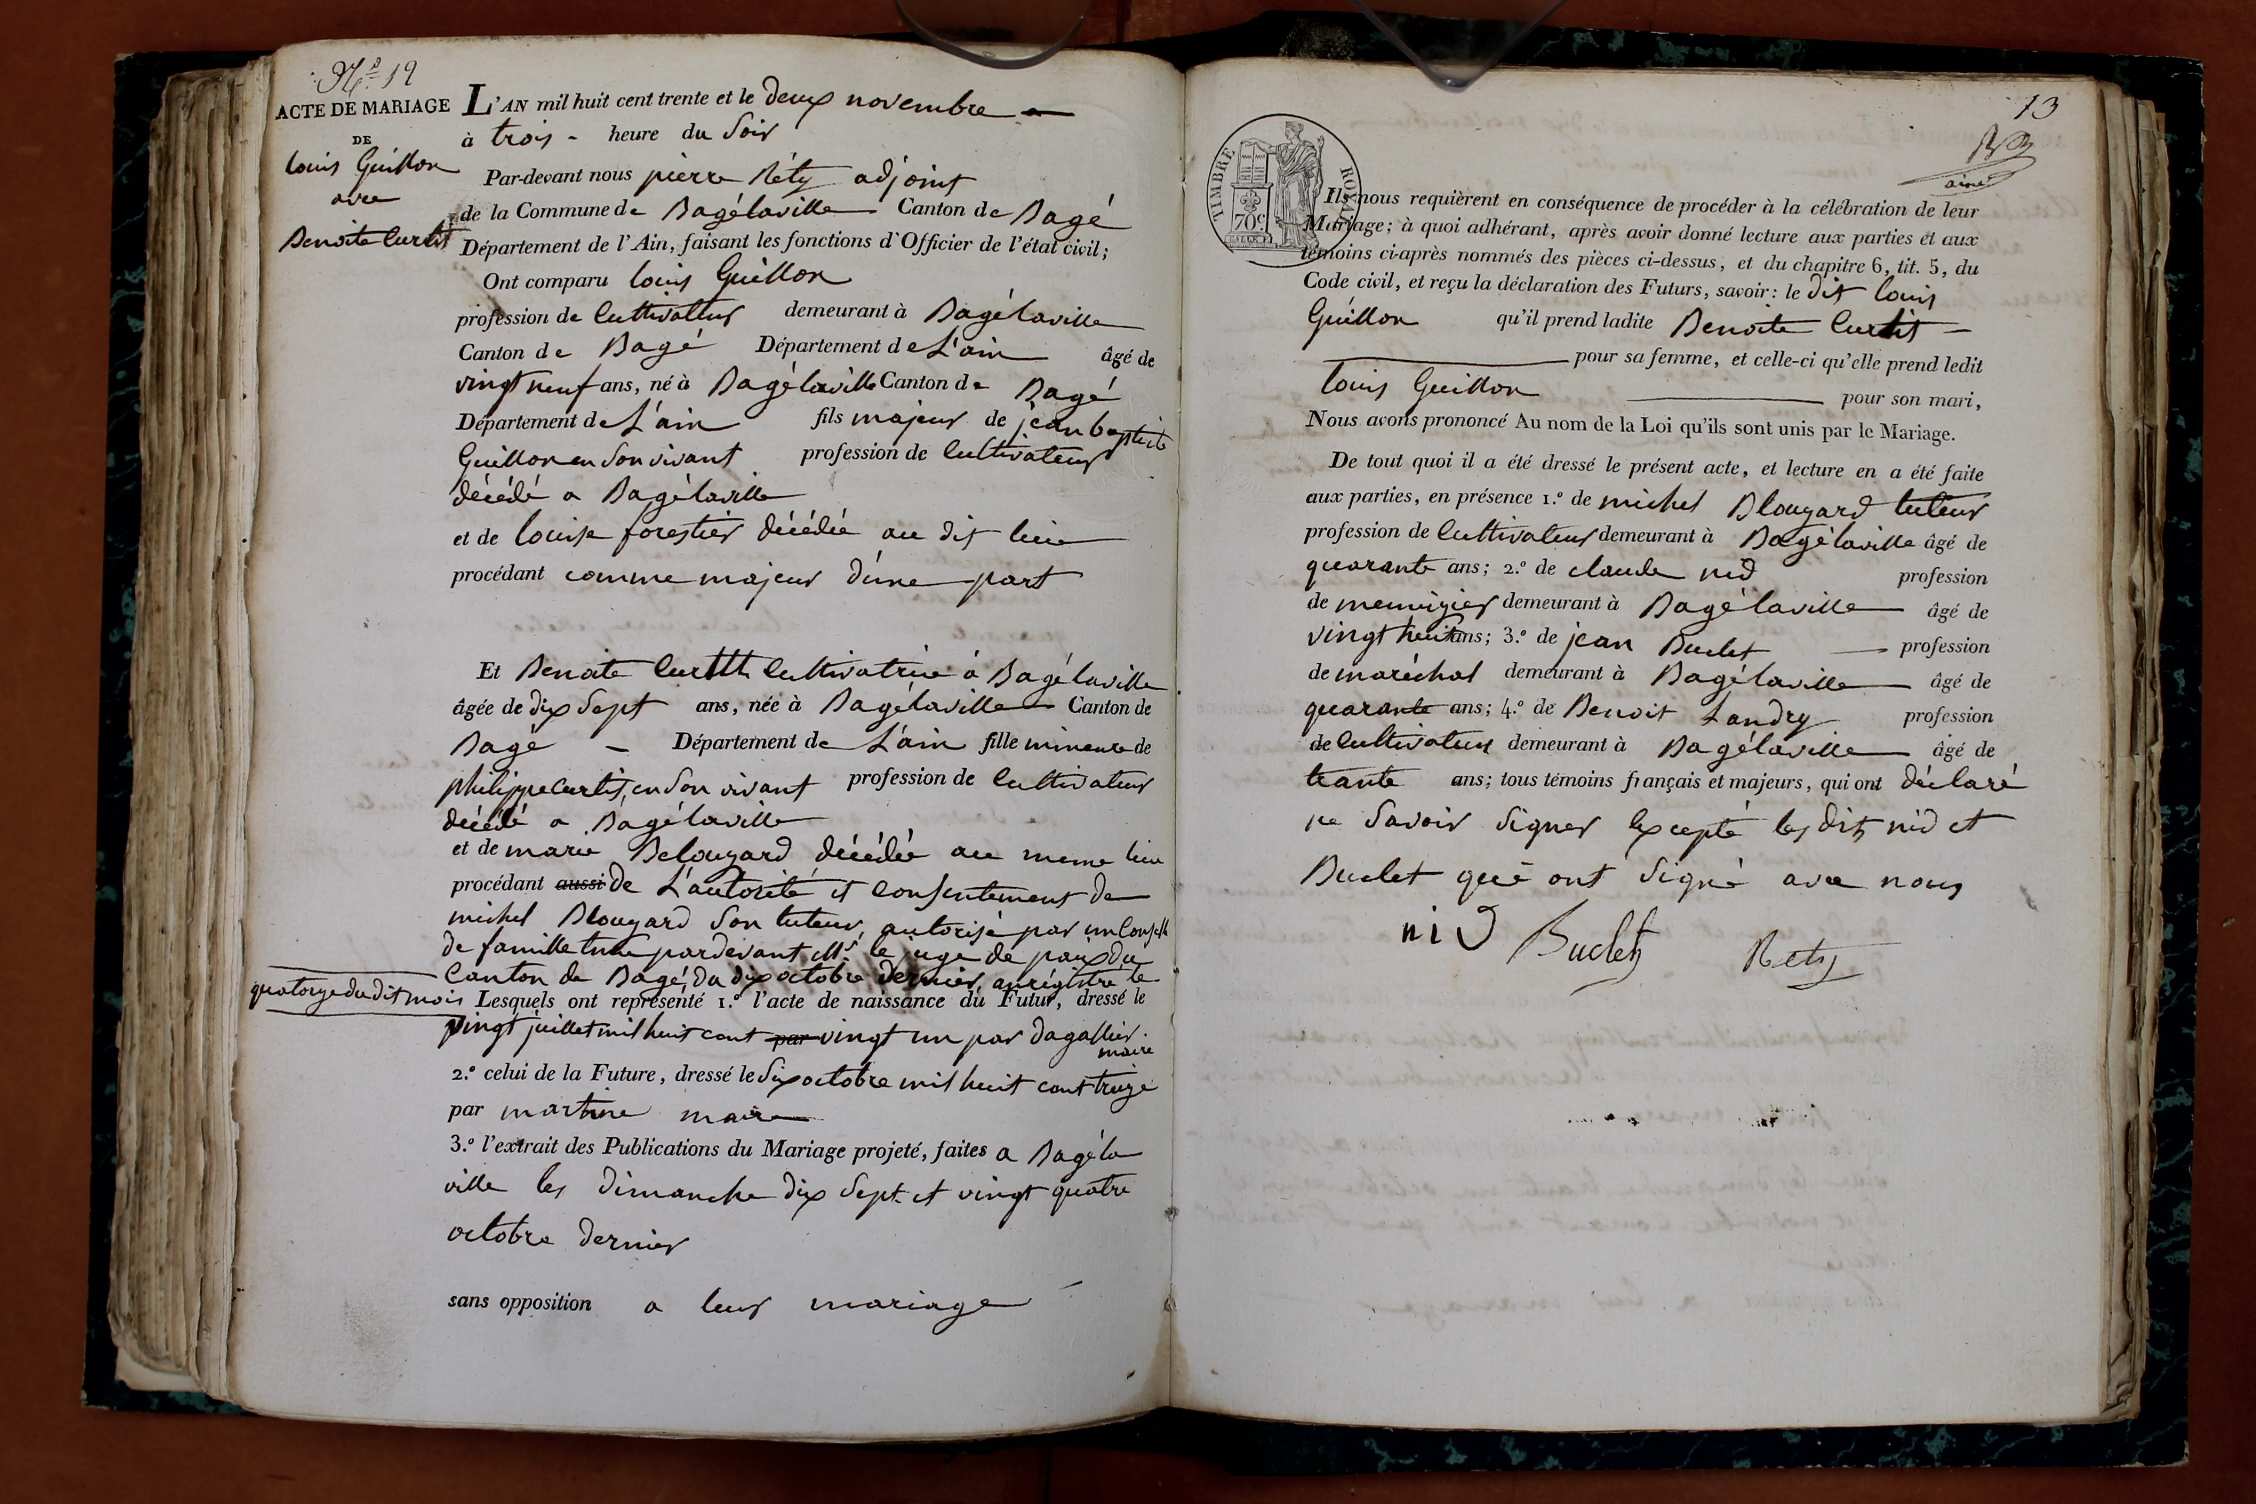 N.º 19
ACTE DE MARIAGE
DE
louis Guillon
avec
Benoite Curtit
L'AN mil huit cent trente et le deux novembre
à trois - heure du Soir
Par-devant nous pierre Réty adjoint
de la Commune de Bagélaville Canton de Bagé
Département de l'Ain, faisant les fonctions d'Officier de l'état civil;
Ont comparu louis Guillon
profession de Cultivateur demeurant à Bagélaville
Canton de Bagé Département de L'ain âgé de
vingt neuf ans, né à Bagélaville Canton de Bagé
Département de L'ain fils majeur de jean baptiste
Guillon en son vivant profession de Cultivateur
décédé a Bagélaville
et de louise forestier décédée au dit lieu
procédant comme majeur d'une part
Et Benoite Curtit Cultivatrice à Bagélaville
âgée de dix Sept ans, née à Bagélaville Canton de
Bagé - Département de L'ain fille mineure de
philippe Curtit, en son vivant profession de Cultivateur
décédé a Bagélaville
et de marie Belouzard décédée au meme lieu
procédant aussi de L'autorité et Consentement de
michel Blouzard Son tuteur, autorisé par un Conseil
de famille tenu pardevant Mr. le juge de paix du
Canton de Bagé, du dix octobre dernier, enrégistré le
quatorze du dit mois
Lesquels ont représenté 1.º l'acte de naissance du Futur, dressé le
vingt juillet mil huit cent par vingt un par dagallier
maire
2.º celui de la Future, dressé le Six octobre mil huit cent treize
par martine maire
3.º l'extrait des Publications du Mariage projeté, faites a Bagéla
ville les dimanche dix Sept et vingt quatre
octobre dernier
sans opposition a leur mariage
13
ainé
TIMBRE ROYAL
70c
Ils nous requièrent en conséquence de procéder à la célébration de leur
Mariage; à quoi adhérant, après avoir donné lecture aux parties et aux
témoins ci-après nommés des pièces ci-dessus, et du chapitre 6, tit. 5, du
Code civil, et reçu la déclaration des Futurs, savoir: le dit louis
Guillon qu'il prend ladite Benoite Curtit
pour sa femme, et celle-ci qu'elle prend ledit
louis Guillon pour son mari,
Nous avons prononcé Au nom de la Loi qu'ils sont unis par le Mariage.
De tout quoi il a été dressé le présent acte, et lecture en a été faite
aux parties, en présence 1.º de michel Blouzard tuteur
profession de Cultivateur demeurant à Bagélaville âgé de
quarante ans; 2.º de claude nid profession
de menuizier demeurant à Bagélaville âgé de
vingt huit ans; 3.º de jean Buclet profession
de maréchal demeurant à Bagélaville âgé de
quarante ans; 4.º de Benoit Landry profession
de Cultivateur demeurant à Bagélaville âgé de
trante ans; tous témoins français et majeurs, qui ont déclaré
ne Savoir Signer Excepté les dits nid et
Buclet qui ont Signé avec nous
nid Buclet Rety